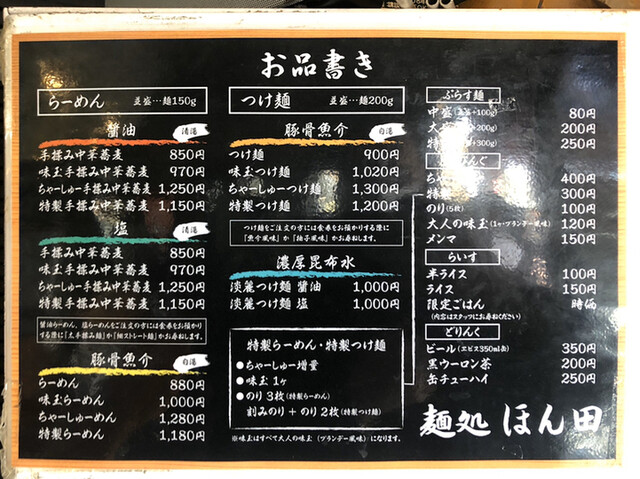 お品書き
らーめん 並盛…麺150g
醤油 清湯
手揉み中華蕎麦 850円
味玉手揉み中華蕎麦 970円
ちゃーしゅー手揉み中華蕎麦 1,250円
特製手揉み中華蕎麦 1,150円
塩 清湯
手揉み中華蕎麦 850円
味玉手揉み中華蕎麦 970円
ちゃーしゅー手揉み中華蕎麦 1,250円
特製手揉み中華蕎麦 1,150円
醤油らーめん、塩らーめんをご注文の方には食券をお預かり
する際に「太手揉み麺」か「細ストレート麺」かお尋ねします。
豚骨魚介 白湯
らーめん 880円
味玉らーめん 1,000円
ちゃーしゅーらーめん 1,280円
特製らーめん 1,180円
つけ麺 並盛…麺200g
豚骨魚介 白湯
つけ麺 900円
味玉つけ麺 1,020円
ちゃーしゅーつけ麺 1,300円
特製つけ麺 1,200円
つけ麺をご注文の方には食券をお預かりする際に
「魚介風味」か「柚子風味」かお尋ねします。
濃厚昆布水
淡麗つけ麺 醤油 1,000円
淡麗つけ麺 塩 1,000円
特製らーめん・特製つけ麺
●ちゃーしゅー増量
●味玉 1ヶ
●のり 3枚(特製らーめん)
割みのり + のり 2枚(特製つけ麺)
※味玉はすべて大人の味玉(ブランデー風味)になります。
ぷらす麺
中盛 +100g) 80円
大 +200g) 200円
特 +300g) 250円
んぐ
ちゃ 400円
特製 300円
のり(5枚) 100円
大人の味玉(1ヶ・ブランデー風味) 120円
メンマ 150円
らいす
半ライス 100円
ライス 150円
限定ごはん 時価
(内容はスタッフにお尋ねください)
どりんく
ビール(エビス350ml缶) 350円
黒ウーロン茶 200円
缶チューハイ 250円
麺処 ほん田